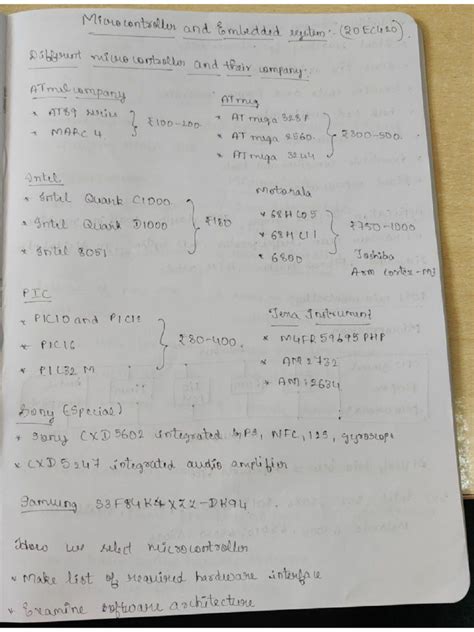 Microcontroller and Embedded system:- (20EC420).
Different microcontroller and their company:-
ATmel company
* AT89 series
* MARC 4
₹100-200
ATmig
* AT mega 328P
* AT mega 2560
* AT mega 3244
₹300-500
Intel
* Intel Quark C1000
* Intel Quark D1000
* Intel 8051
₹180
Motorala
* 68HC05
* 68HC11
* 6800
₹750-1000
Toshiba
Arm cortex-M3
PIC
* PIC10 and PIC12
* PIC16
* PIC32 M
₹80-400
Texa Instrument
* M4FR59695PHP
* AM2732
* AM:2634
Sony (Special)
* Sony CXD5602 integrated GPS, NFC, 125, gyroscope
* CXD5247 integrated audio amplifier
Samsung S3F84K4XZZ-DK94
How we select microcontroller
* Make list of required hardware interface
* Examine software architecture